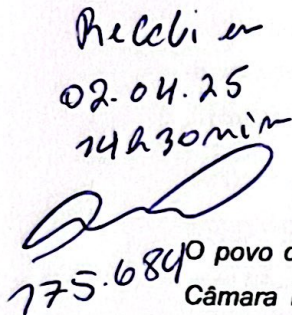 Recebi em
02.04.25
14h30min
175.684
O povo d
Câmara